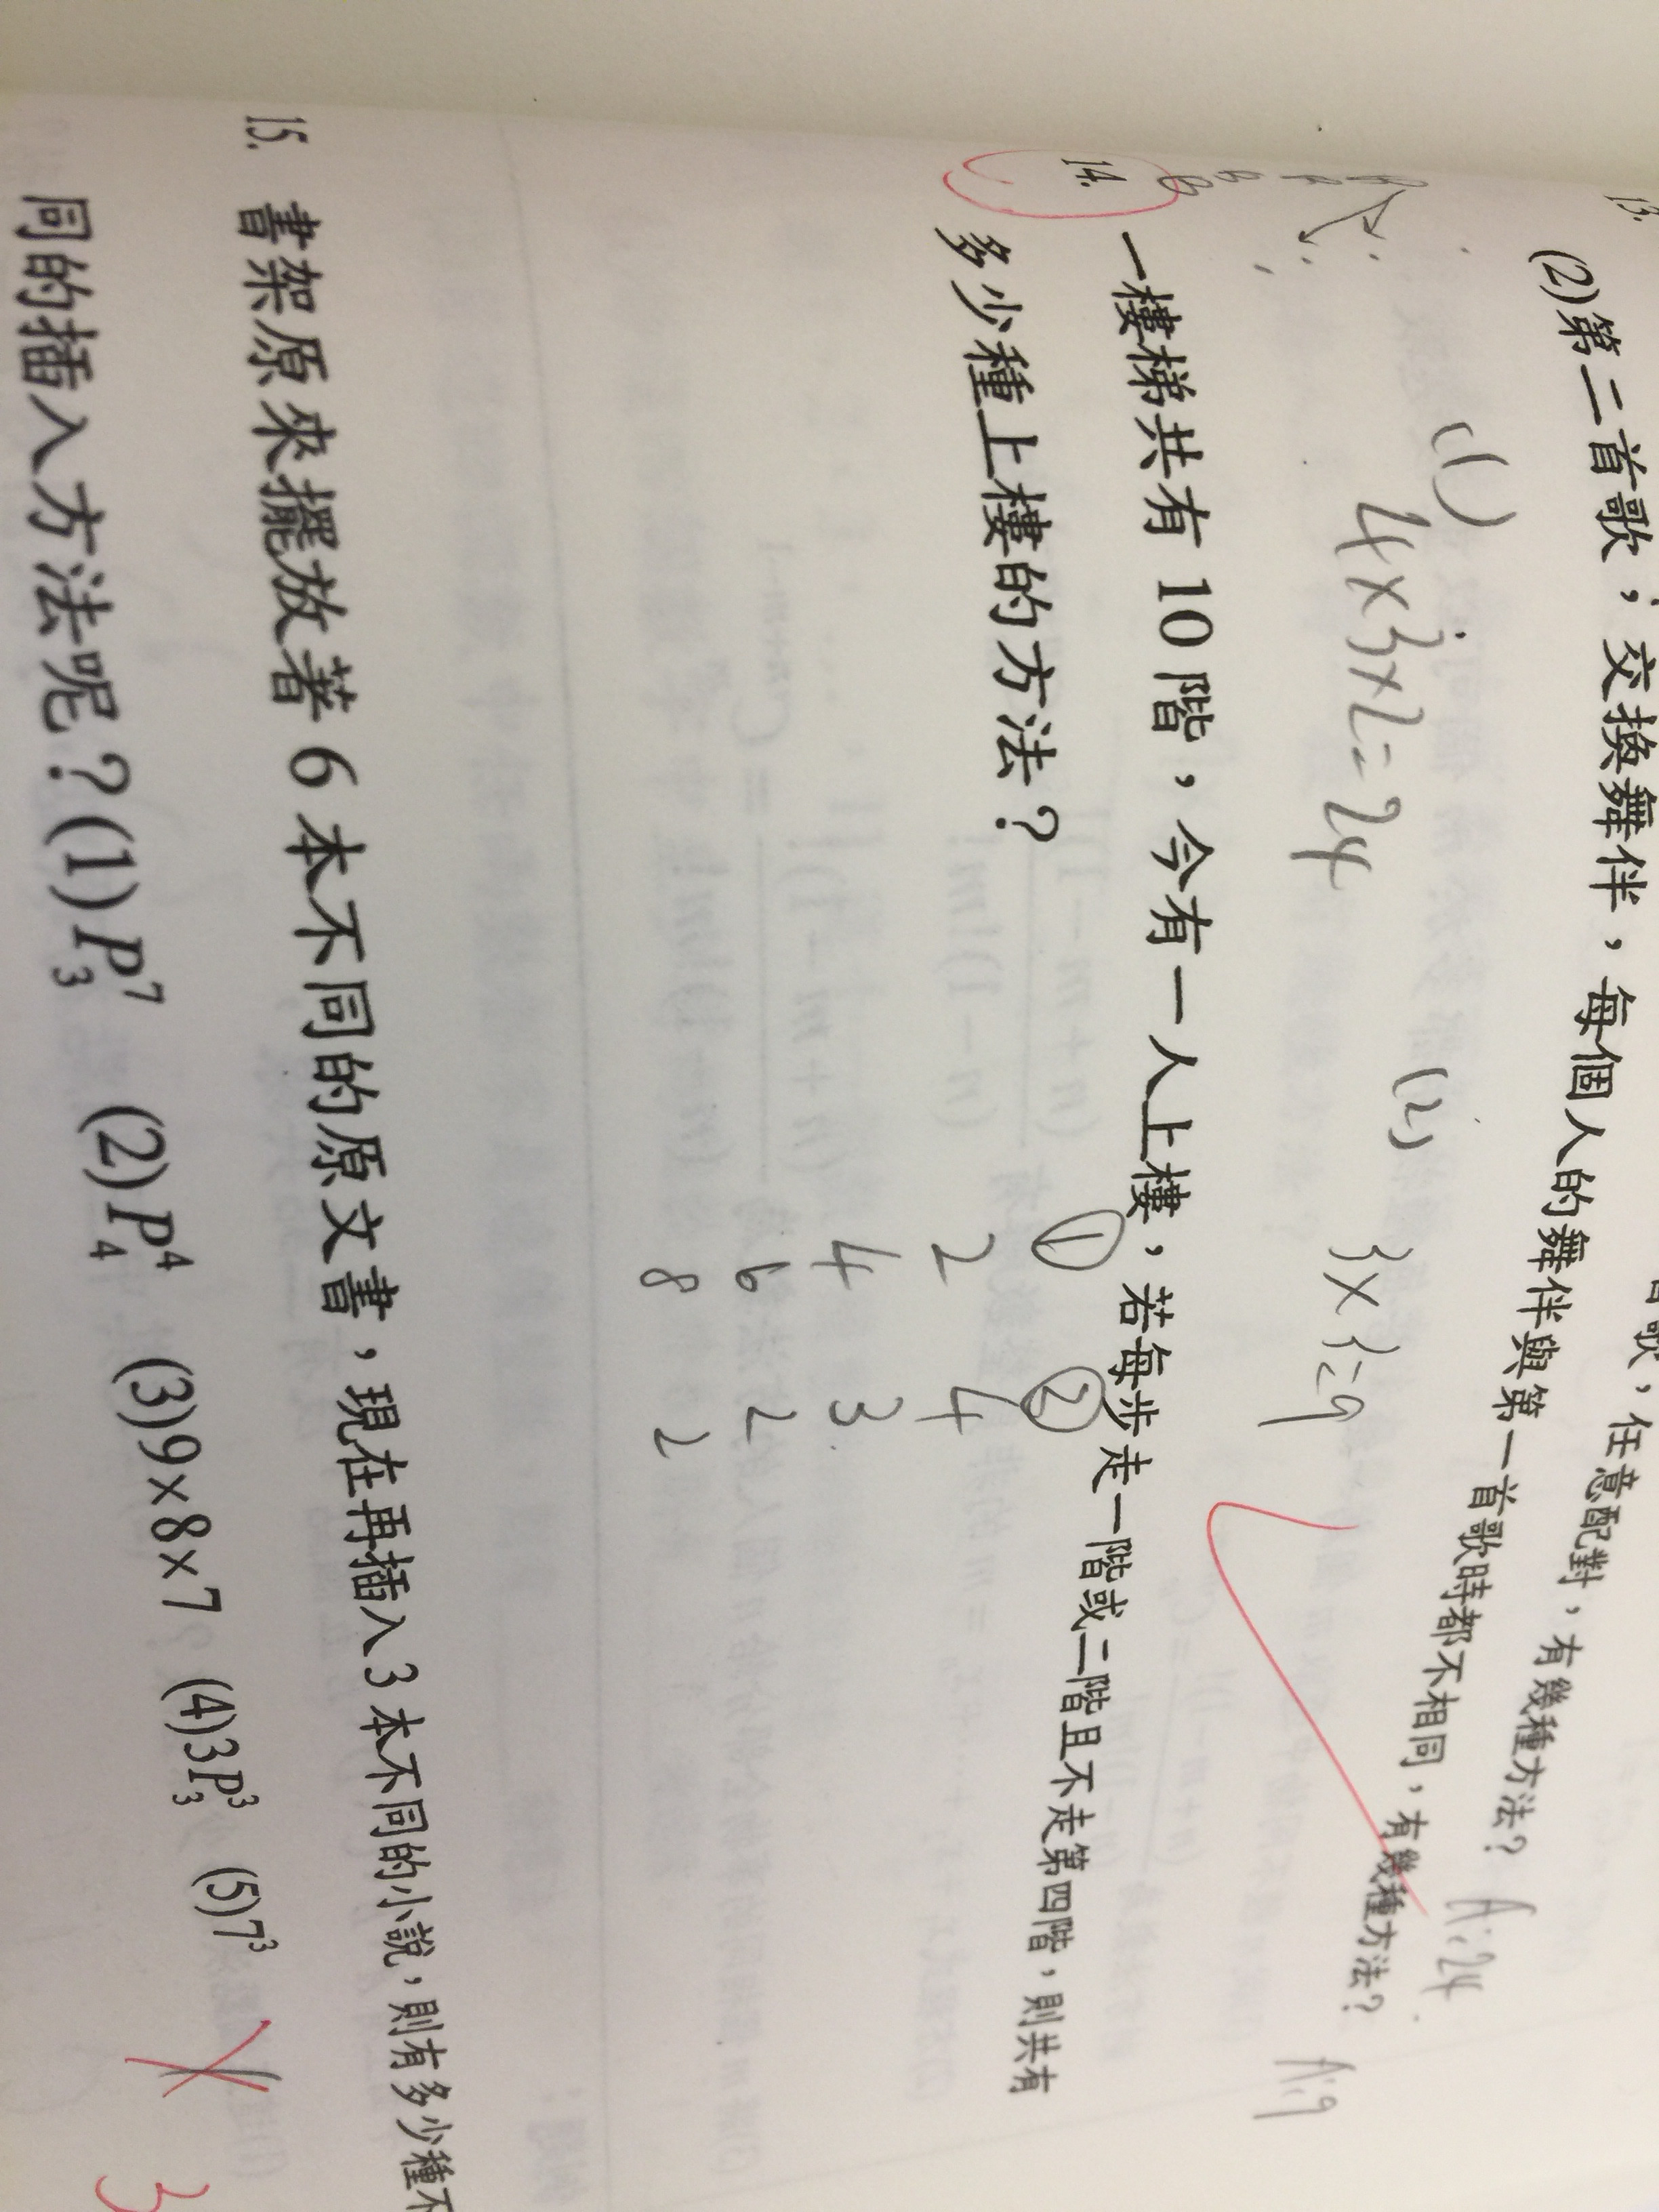 13.
歌,任意配對,有幾種方法? A:24
(2)第二首歌,交換舞伴,每個人的舞伴與第一首歌時都不相同,有幾種方法? A:9
(1)
4×3×2=24
(2)
3×3=9
14. 一樓梯共有 10 階,今有一人上樓,若每步走一階或二階且不走第四階,則共有
多少種上樓的方法?
① ②
2 4
4 3
6 2
8 2
15. 書架原來擺放著 6 本不同的原文書,現在再插入 3 本不同的小說,則有多少種不
同的插入方法呢?(1)P⁷₃ (2)P⁴₄ (3)9×8×7 (4)3P³₃ (5)7³
3